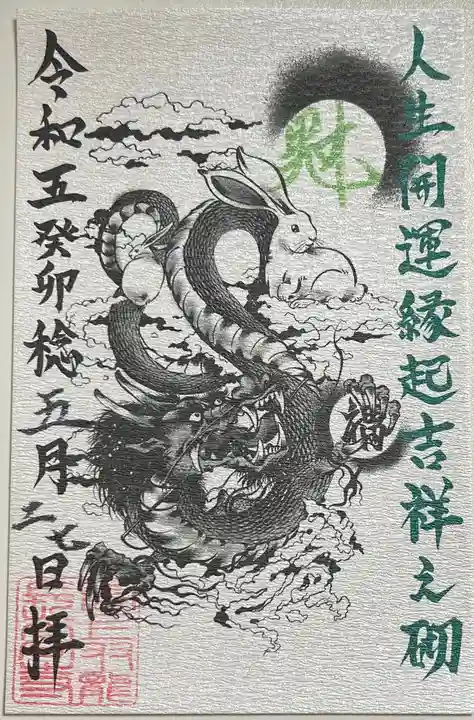 人生開運縁起吉祥之砌
財
満
令和五癸卯稔五月二七日拝